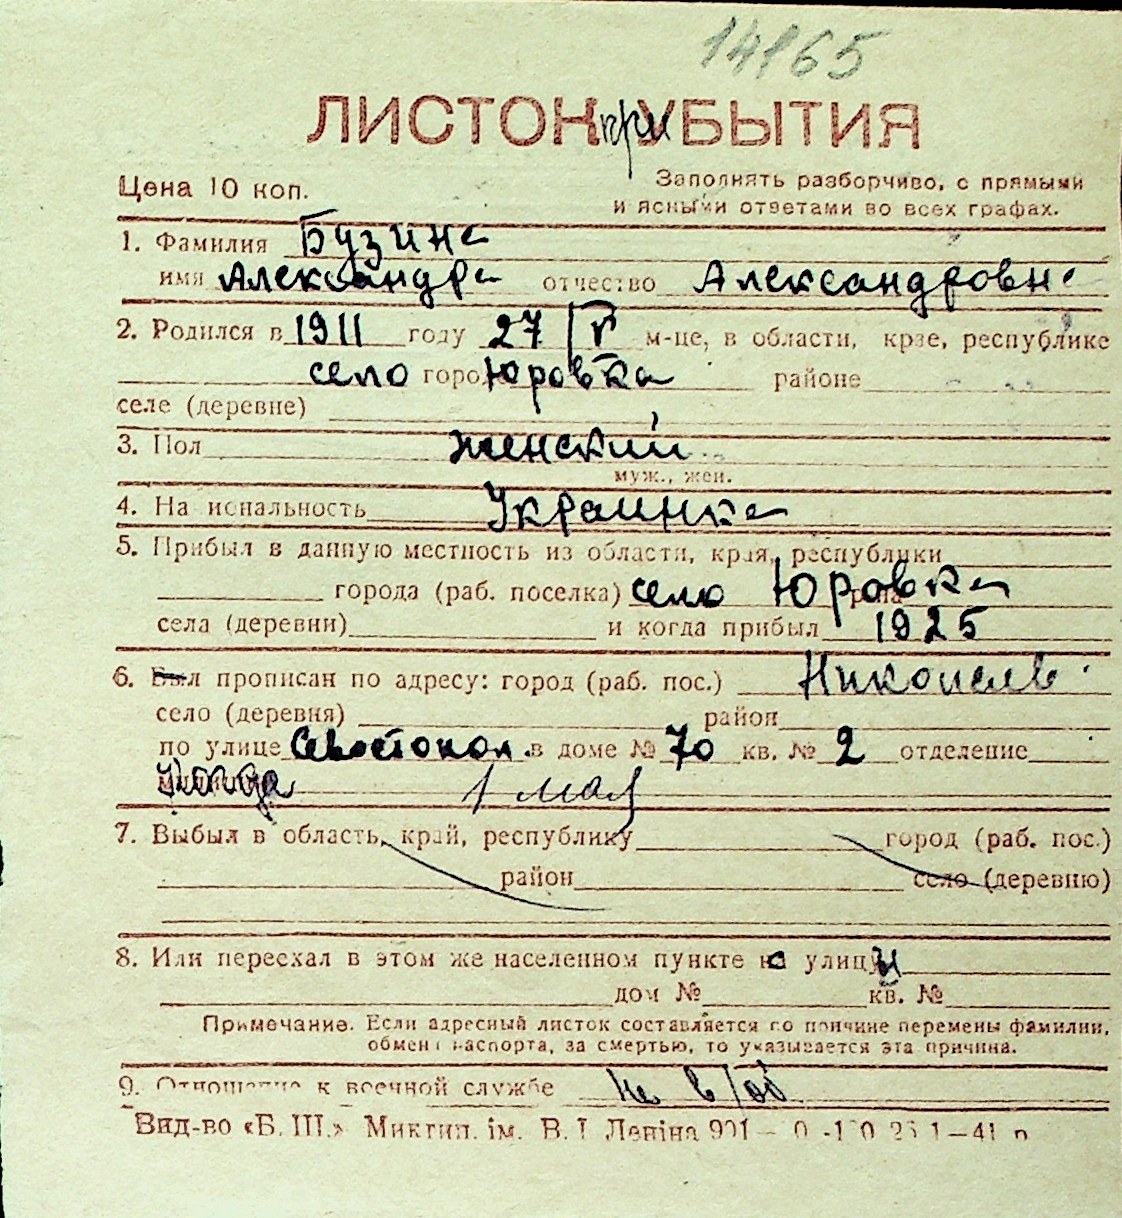 14165
ЛИСТОК при УБЫТИЯ
Цена 10 коп.
Заполнять разборчиво, с прямыми
и ясными ответами во всех графах.
1. Фамилия Бузина
имя Александра отчество Александровн
2. Родился в 1911 году 27/V м-це, в области, крае, республике
село горо Юровка районе
селе (деревне)
3. Пол женский
муж., жен.
4. Национальность Украинка
5. Прибыл в данную местность из области, края, республики
города (раб. поселка) село Юровка
села (деревни) и когда прибыл 1925
6. Был прописан по адресу: город (раб. пос.) Никополь
село (деревня) район
по улице Севостопол. в доме № 70 кв. № 2 отделение
когда 1 мая
7. Выбыл в область, край, республику город (раб. пос.)
район село (деревню)
8. Или переехал в этом же населенном пункте с улицы
дом № кв. №
Примечание. Если адресный листок составляется по причине перемены фамилии,
обмена паспорта, за смертью, то указывается эта причина.
9. Отношение к военной службе не в/об
Вид-во «Б. Ш.» Миктип. ім. В. І. Леніна